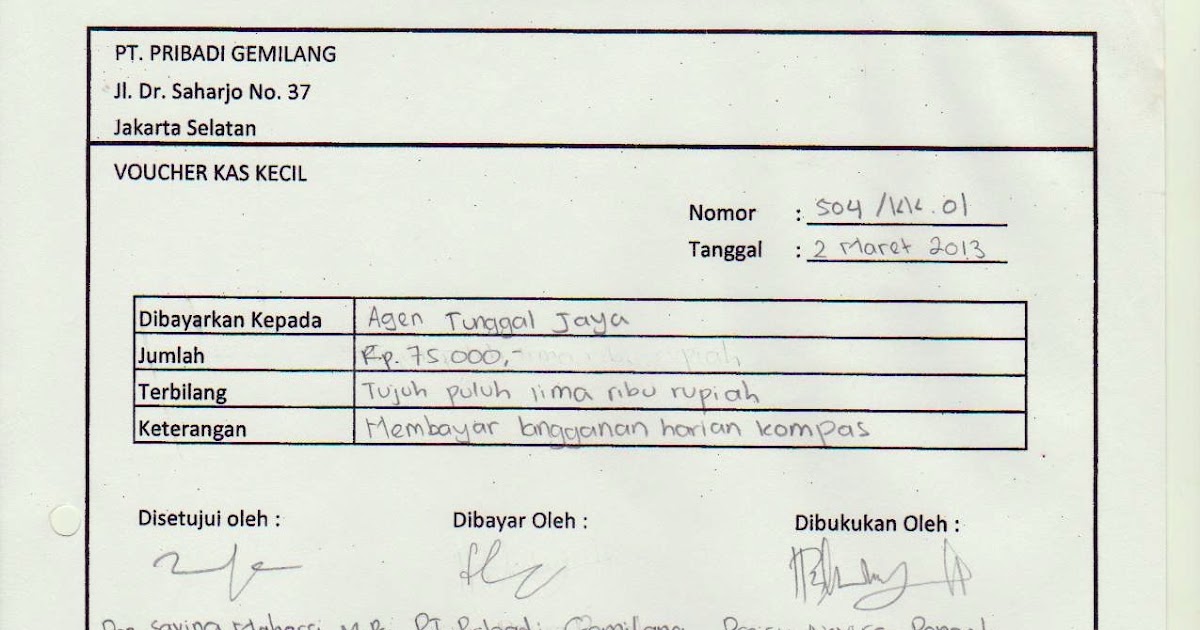 PT. PRIBADI GEMILANG
Jl. Dr. Saharjo No. 37
Jakarta Selatan
VOUCHER KAS KECIL
Nomor : 504 /KK.01
Tanggal : 2 Maret 2013
Dibayarkan Kepada Agen Tunggal Jaya
Jumlah Rp. 75.000,-
Terbilang Tujuh puluh lima ribu rupiah
Keterangan Membayar langganan harian kompas
Disetujui oleh : Dibayar Oleh : Dibukukan Oleh :
PT